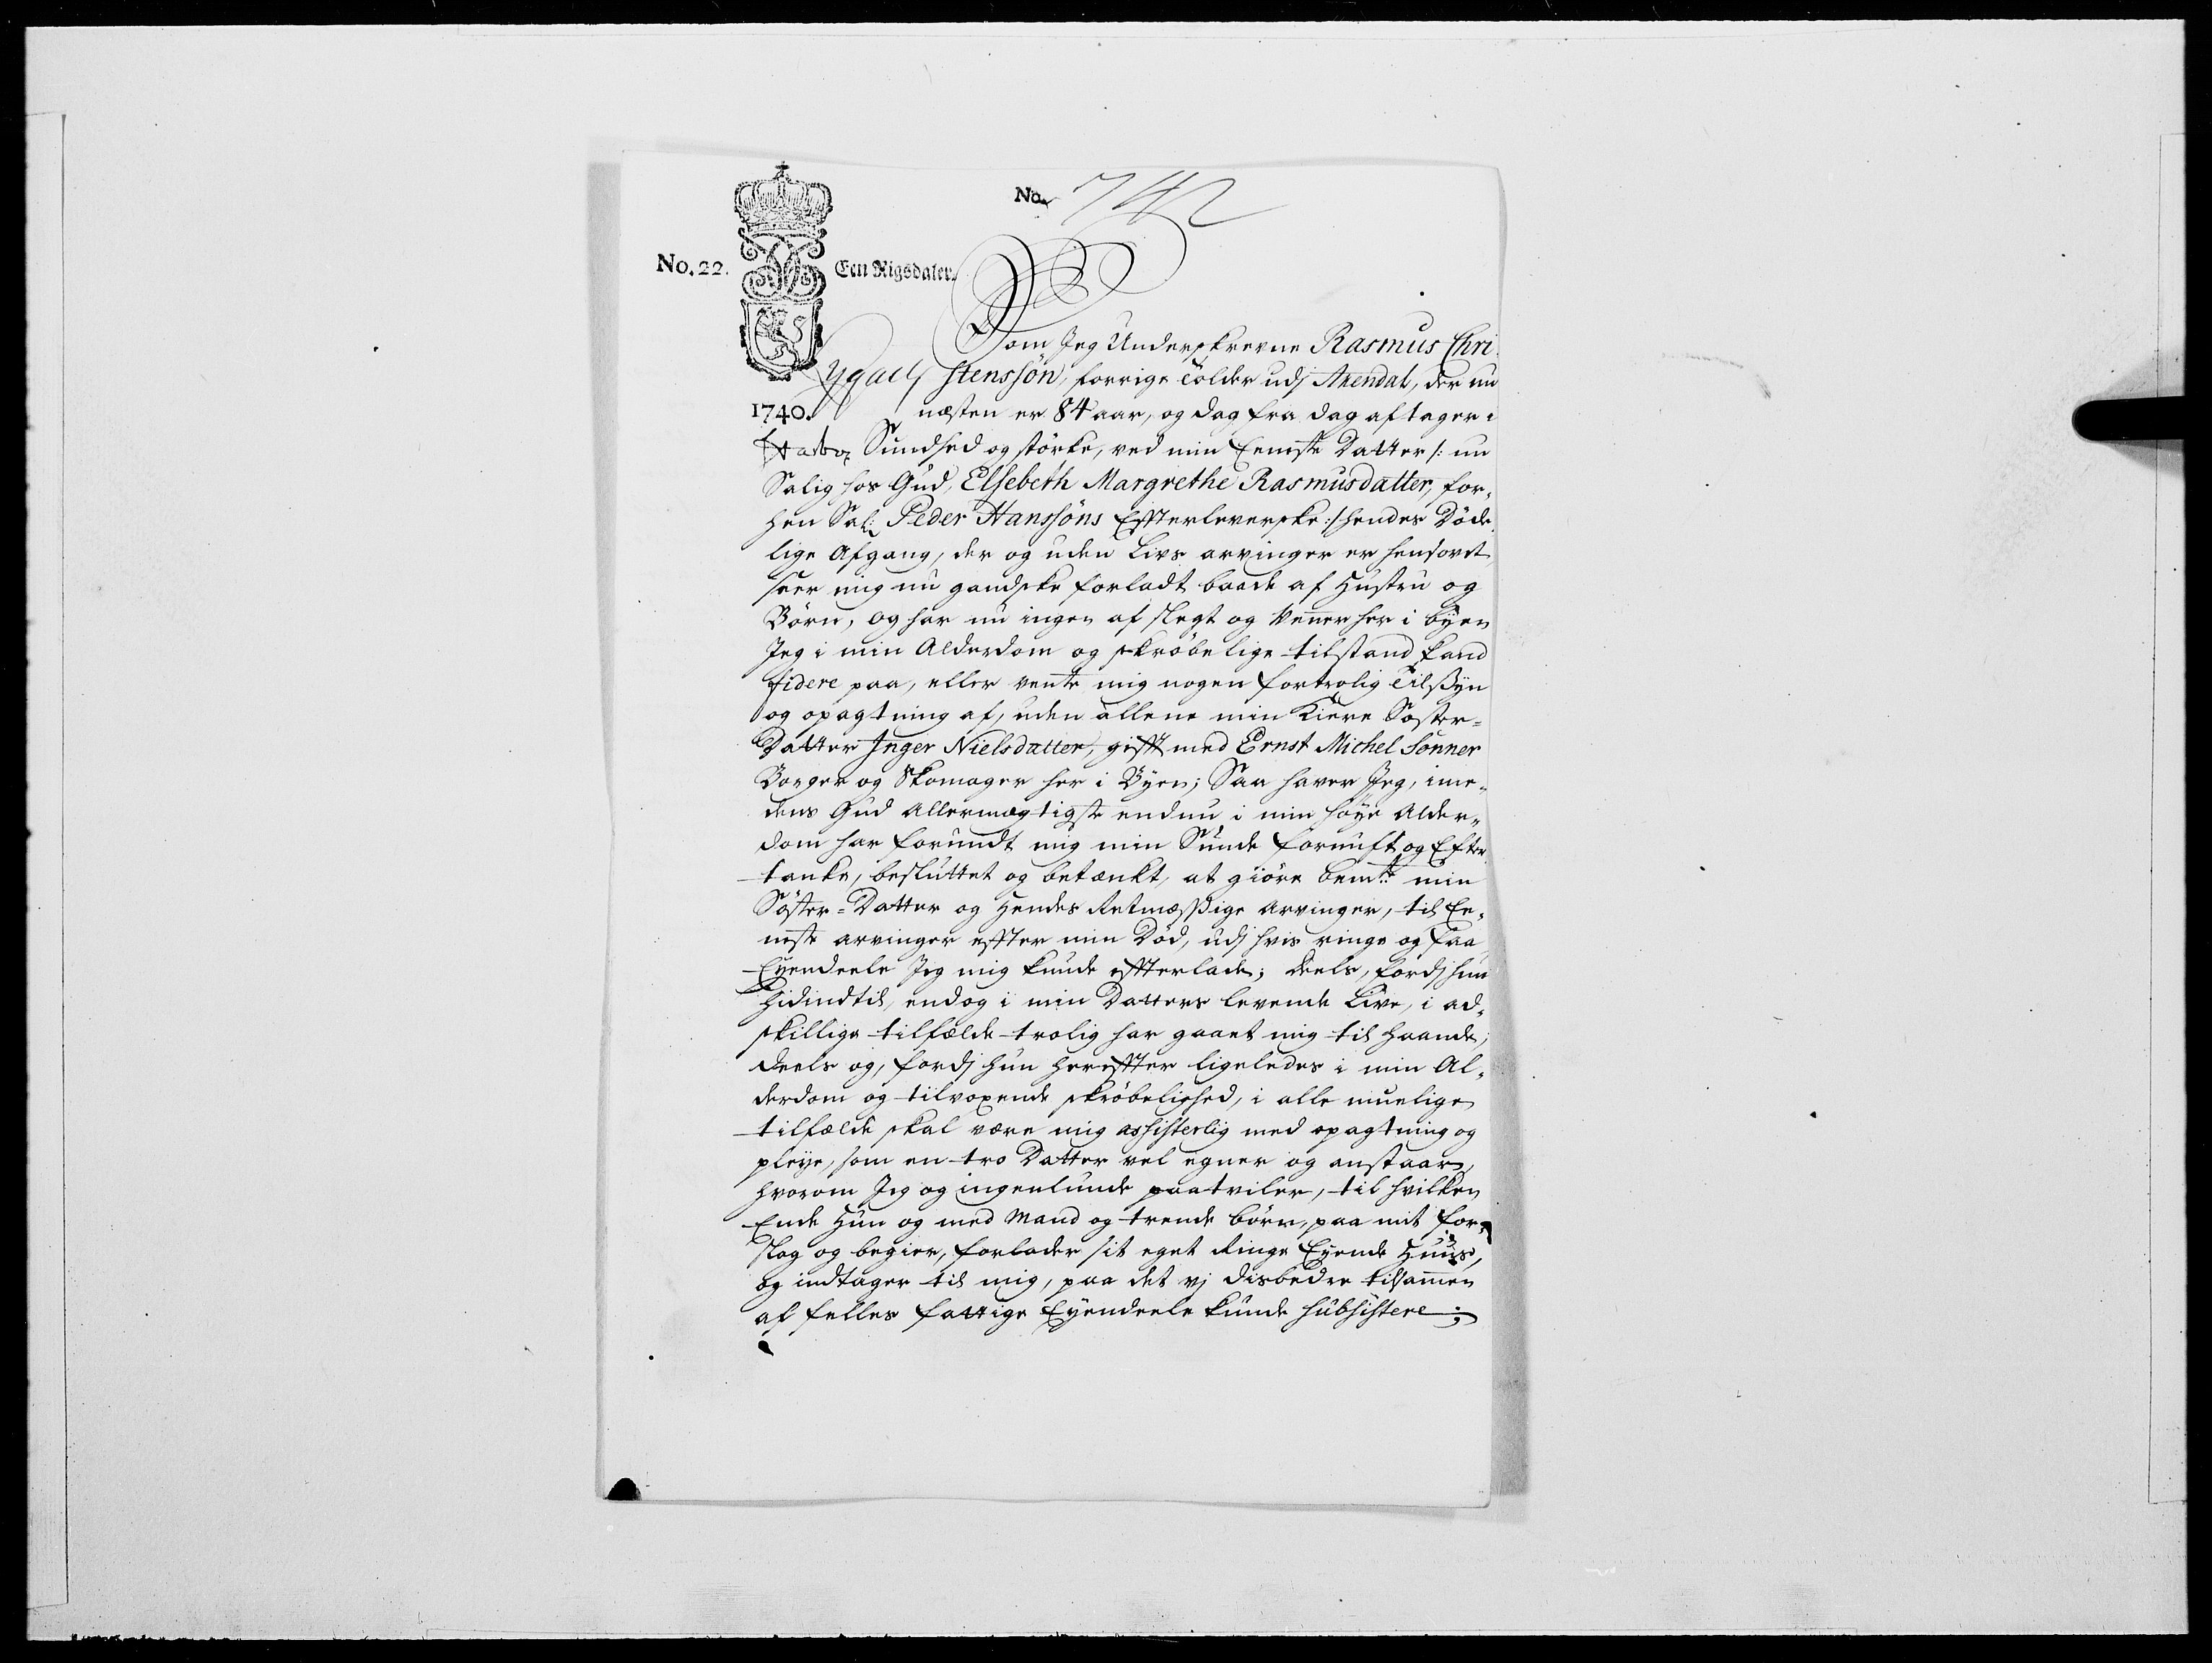 No. 742
No. 22.
Een Rigsdaler.
Som Jeg Underskrevne Rasmus Chri-
stensøn, forrige Tolder udj Arendal, der nu
1740.
næsten er 84 aar, og dag fra dag aftager i
Sundhed og störke, ved min Eeneste Datter /: nu
Salig hos Gud, Elsebeth Margrethe Rasmusdatter, for-
hen Sal: Peder Hanssöns Effterleverske :/ hendes Döde-
lige Afgang, der og uden Livs arvinger er hensovet,
seer mig nu gandske forladt baade af Hustru og
Börn, og har nu ingen af slegt og Venner her i byen
Jeg i min Alderdom og skröbelige tilstand kand
fidere paa, eller vente mig nogen fortrolig Tilsyn
og opagtning af, uden allene min Kiere Söster-
Datter Inger Nielsdatter, gifft med Ernst Michel Sönner
Borger og Skomager her i Byen; Saa haver Jeg, ime-
dens Gud Allermægtigste endnu i min höye Alder-
dom har forundt mig min Sunde fornuft og Efter-
tanke, besluttet og betænkt, at giöre bemte min
Söster-Datter og Hendes Retmæssige Arvinger, til Ee-
neste arvinger effter min Död, udj hvis ringe og faa
Eyendeele Jeg mig kunde effterlade; deels, fordj hun
hidindtil, endog i min Datters levende Live, i ad-
skillige tilfælde trolig har gaaet mig til haande;
deels og, fordj hun hereffter ligeledes i min Al-
derdom og tilvoxende skröbelighed, i alle muelige
tilfælde skal være mig assisterlig med opagtning og
pleye, som en tro Datter vel egner og anstaar,
hvorom Jeg og ingenlunde paatviler, til hvilken
Ende Hun og med Mand og trende börn, paa mit for-
slag og begier, forlader sit eget Ringe Eyende Huus,
og indtager til mig, paa det vj disbedre tilsamen
af felles fattige Eyendeele kunde subsistere;